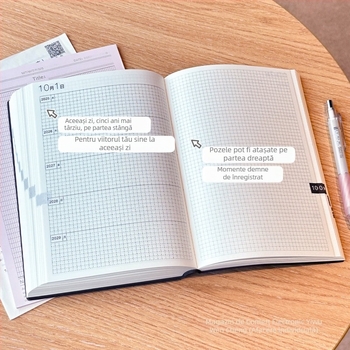 10月1日
2025
Aceeași zi, cinci ani mai
târziu, pe partea stângă
2026
Pentru viitorul tău sine la
aceeași zi
Pozele pot fi atașate pe
partea dreaptă
Momente demne
de înregistrat
2027
2028
2029